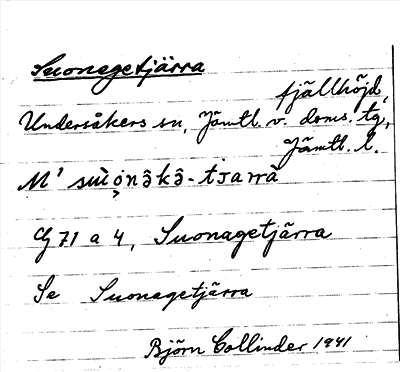 Suonagetjärra
fjällhöjd,
Undersåkers sn, Jämtl. v. doms. tg,
Jämtl. l.
M¹ - tjarrà
G 71 a 4, Suonagetjärra
Se Suonagetjärra
Björn Collinder 1941